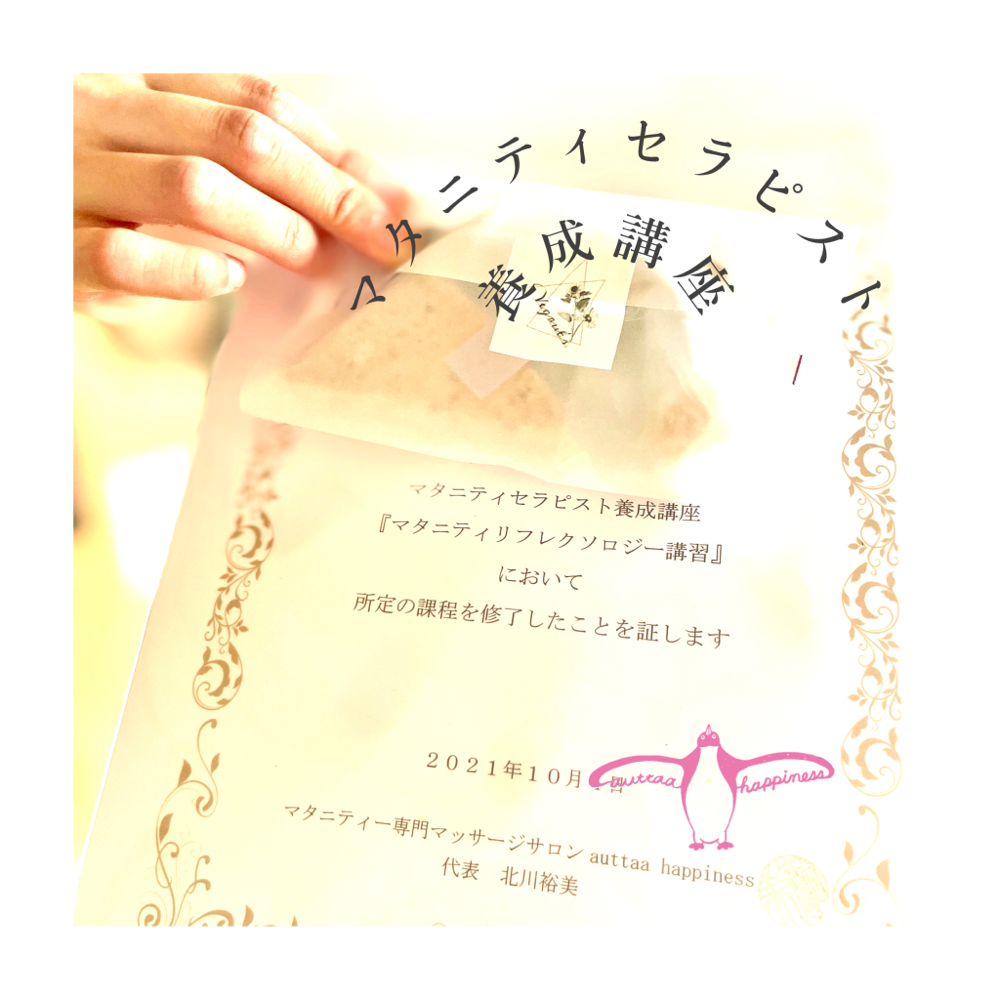 マタニティセラピスト
養成講座
マタニティセラピスト養成講座
『マタニティリフレクソロジー講習』
において
所定の課程を修了したことを証します
2021年10月
auttaa happiness
マタニティー専門マッサージサロン auttaa happiness
代表 北川裕美